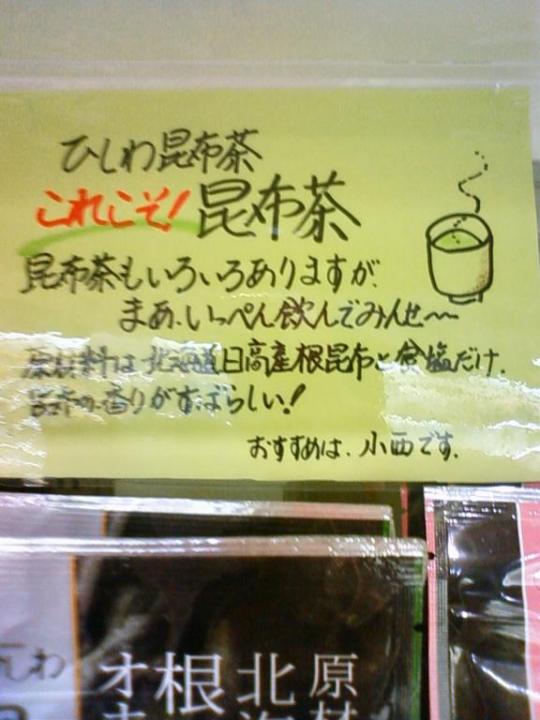 ひしわ昆布茶
これこそ!昆布茶
昆布茶もいろいろありますが、
まあ、いっぺん飲んでみんせ〜〜
原材料は北海道日高産根昆布と食塩だけ.
昆布の香りがすばらしい!
おすすめは、小西です.
原材
北海
根
オホ
しわ